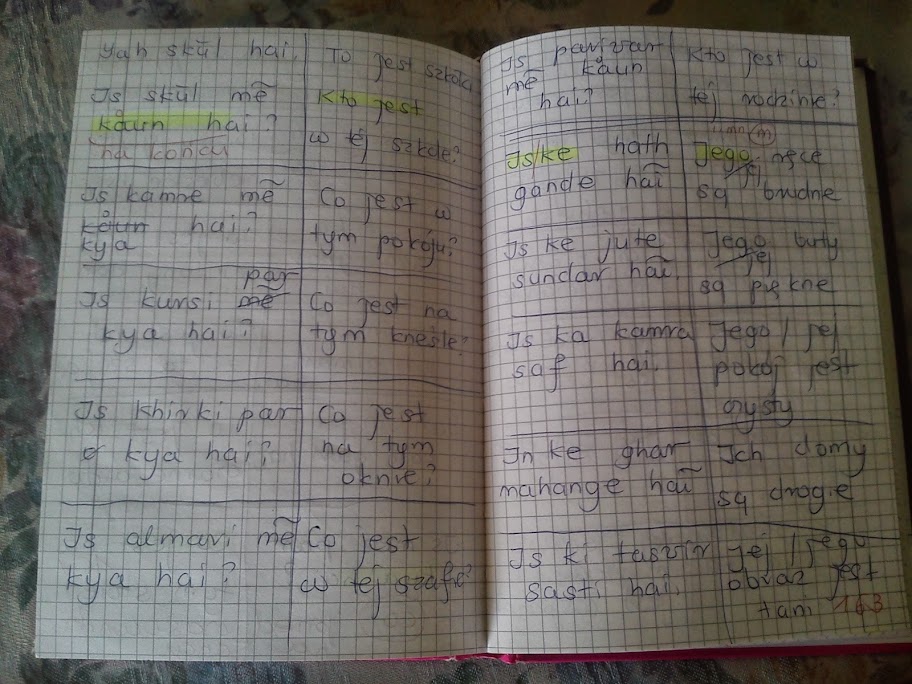 Yah skūl hai.
To jest szkoła
Is skūl mẽ
kåun hai?
na końcu
Kto jest
w tej szkole?
Is kamre mẽ
kåun hai?
kya
Co jest w
tym pokoju?
par
Is kursi mẽ
kya hai?
Co jest na
tym krześle?
Is khirki par
kya hai?
Co jest
na tym
oknie?
Is almari mẽ
kya hai?
Co jest
w tej szafie?
Is parivar
mẽ kåun
hai?
Kto jest w
tej rodzinie?
Is/ke hath
gande haĩ
(m)
Jego ręce
jej
są brudne
Is ke jute
sundar haĩ.
Jego buty
jej
są piękne
Is ka kamra
saf hai.
Jego / jej
pokój jest
czysty
In ke ghar
mahange haĩ
Ich domy
są drogie
Is ki tasvir
sasti hai.
Jej / jego
obraz jest
tani